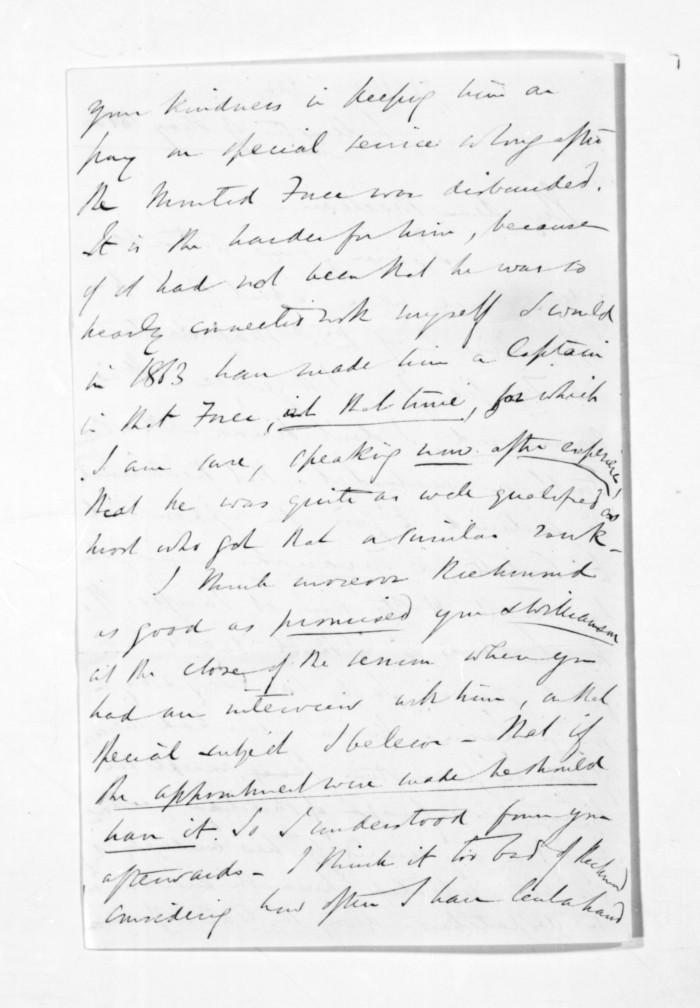 your kindness in keeping him on
pay on special service so long after
the Mounted Force was disbanded.
It is the harder for him, because
if it had not been that he was so
nearly connected with myself I would
in 1863 have made him a Captain
in that Force, at that time, for which
I am sure, speaking now after experience,
that he was quite as well qualified as
most who got that or similar rank –
I think moreover Richmond
as good as promised you & Williamson
at the close of the session when you
had an interview with him, on that
special subject I believe – that if
the appointment were made he should
have it. So I understood from you
afterwards – I think it too bad of Richmond
considering how often I have lent a hand